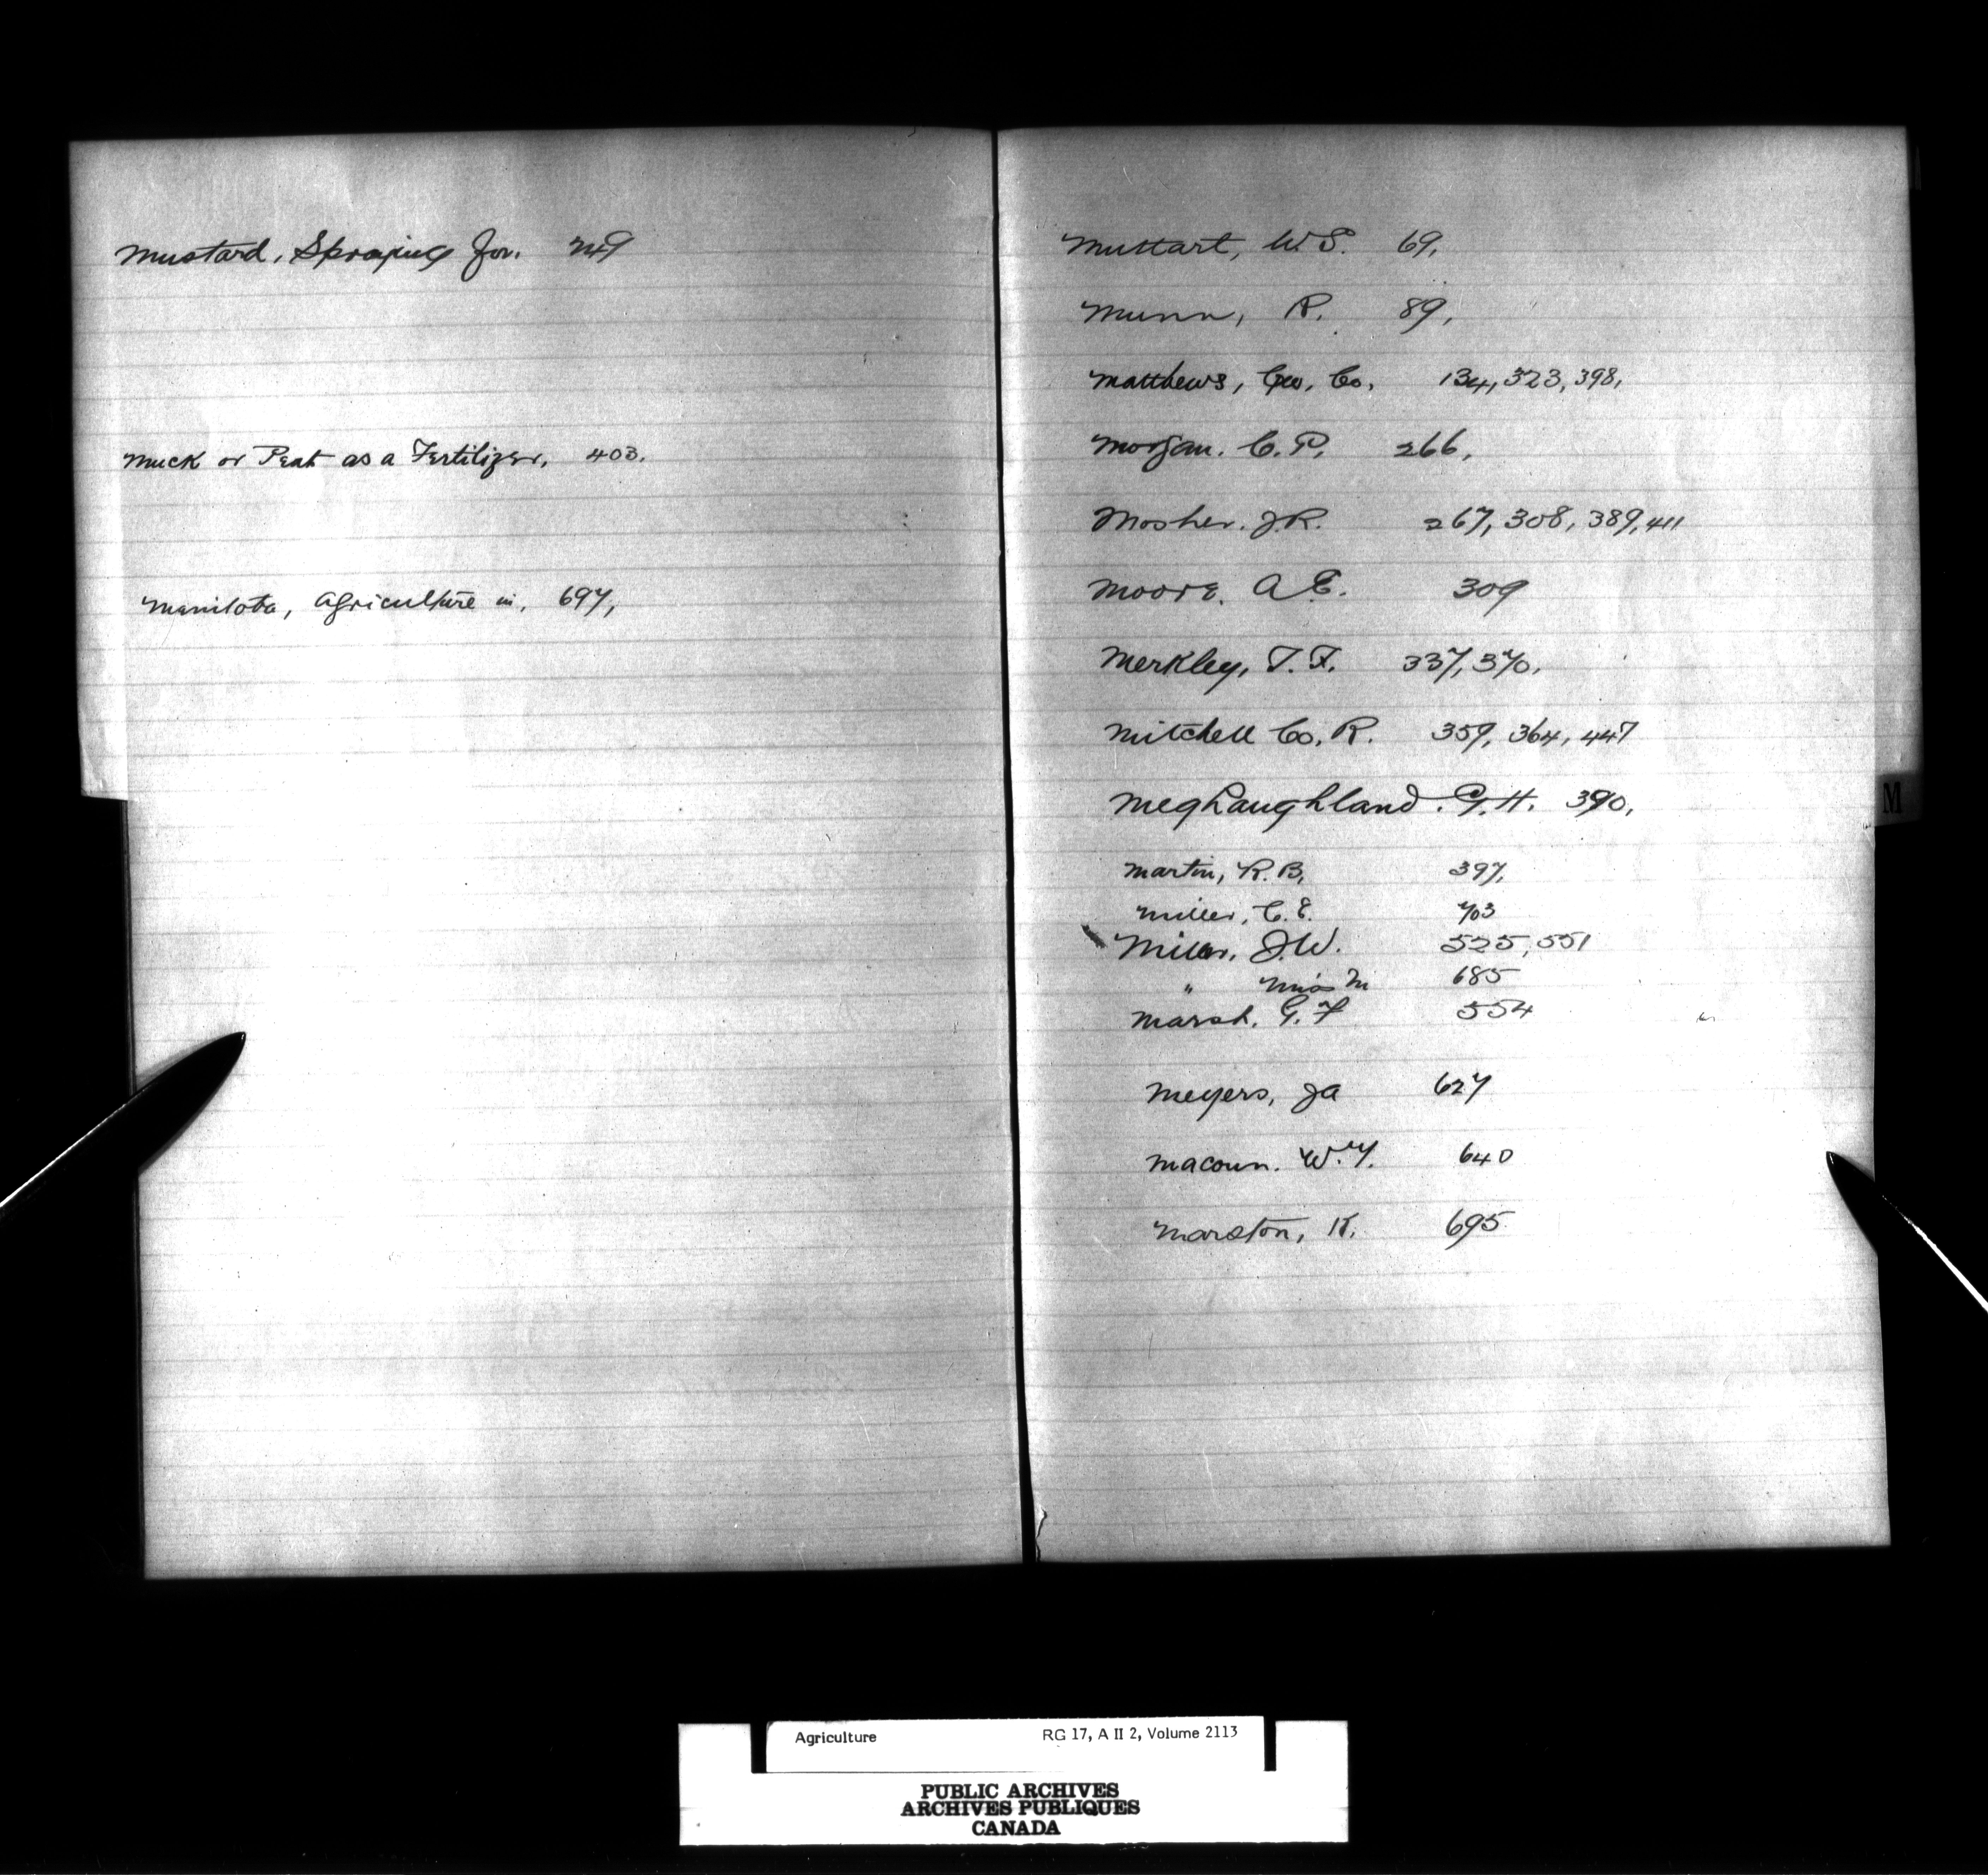 Mustard, Spraying for. 249
Muck or Peat as a Fertilizer, 403.
Manitoba, Agriculture in, 697,
Muttart, W.S. 69,
Munn, R. 89,
Matthews, Geo, Co, 134, 323, 398,
Morgan. C. P. 266,
Mosher. J.R. 267, 308, 389, 411
Moore. A.E. 309
Merkley, T. F. 337, 370,
Mitchell Co, R. 359, 364, 447
Meghaughland. G. H. 390,
Martin, R. B, 397,
Miller, C. E. 403
Miller, J.W. 525, 551
" Miss M 685
Marsh. G. F 554
Meyers, JA 627
Macoun. W.T. 640
Marston, K. 695
M
Agriculture RG 17, A II 2, Volume 2113
PUBLIC ARCHIVES
ARCHIVES PUBLIQUES
CANADA